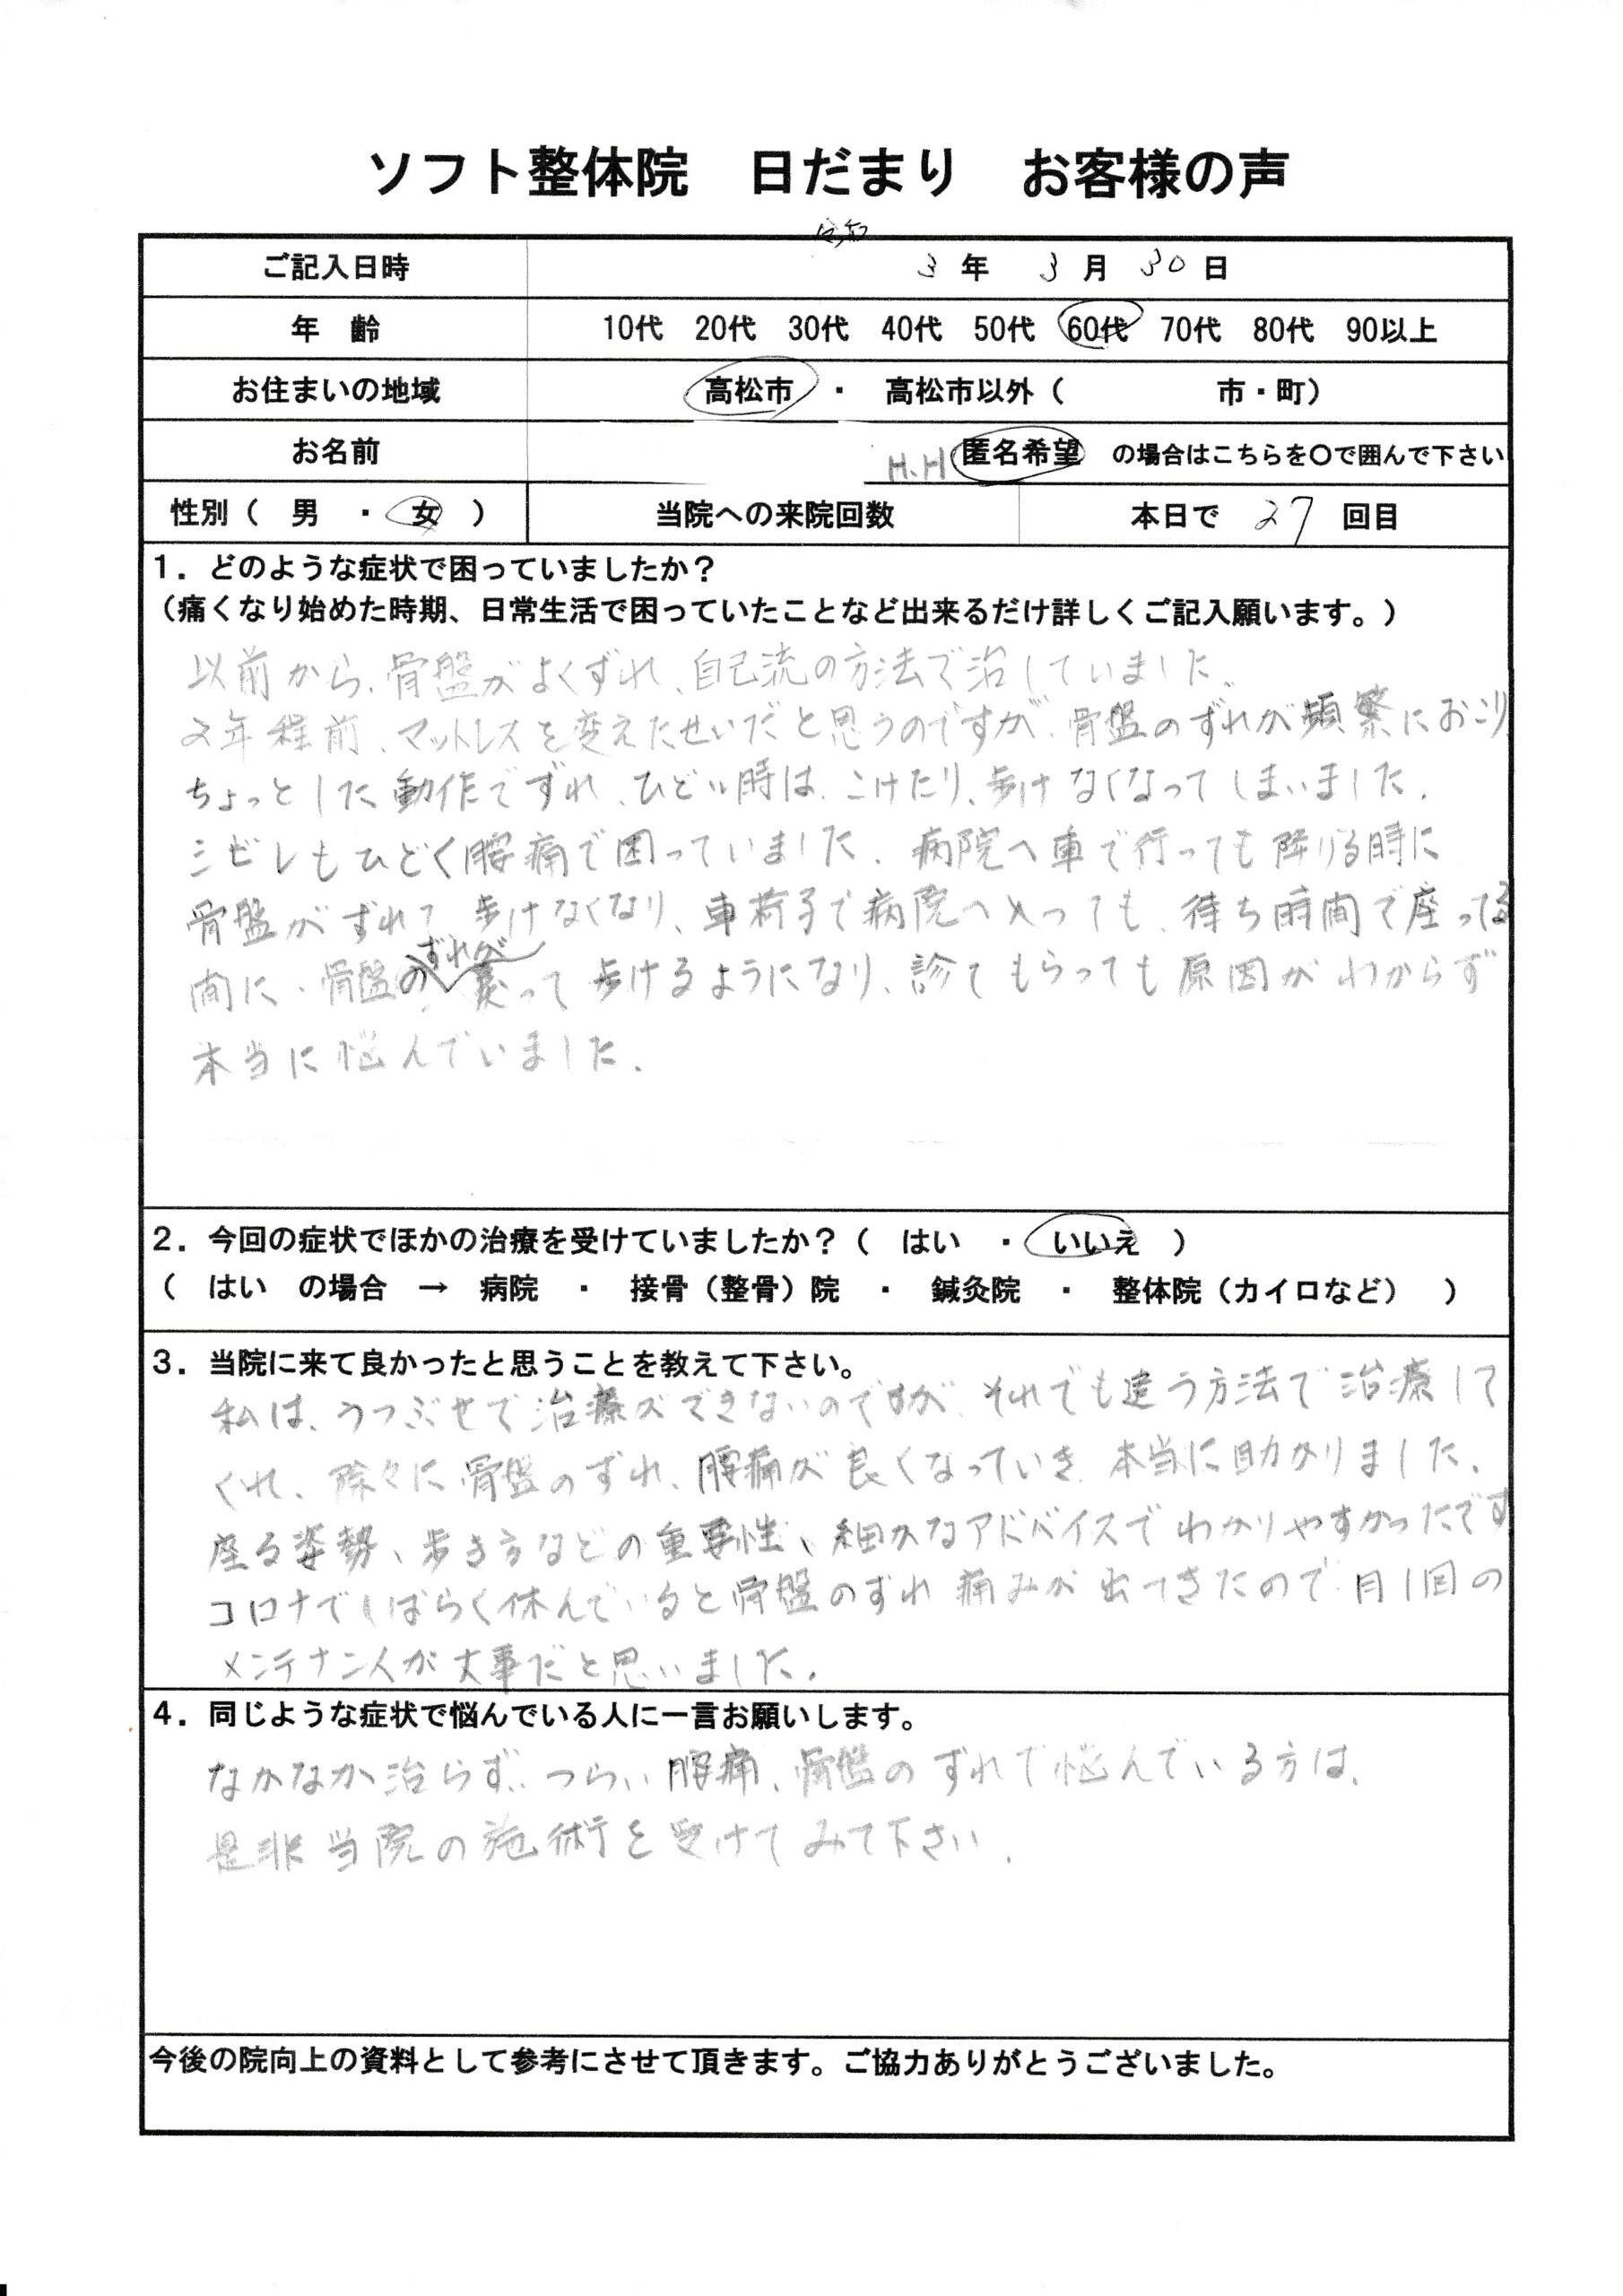 ソフト整体院 日だまり お客様の声
ご記入日時 3年 3月 30日
年 齢 10代 20代 30代 40代 50代 60代 70代 80代 90以上
お住まいの地域 高松市 ・ 高松市以外( 市・町)
お名前 H.H 匿名希望 の場合はこちらを〇で囲んで下さい
性別( 男 ・ 女 ) 当院への来院回数 本日で 27 回目
1.どのような症状で困っていましたか?
(痛くなり始めた時期、日常生活で困っていたことなど出来るだけ詳しくご記入願います。)
以前から、骨盤がよくずれ、自己流の方法で治していました。
2年程前、マットレスを変えたせいだと思うのですが、骨盤のずれが頻繁におこり、
ちょっとした動作でずれ、ひどい時は、こけたり、歩けなくなってしまいました.
シビレもひどく腰痛で困っていました. 病院へ車で行っても降りる時に
骨盤がずれて歩けなくなり、車椅子で病院へ入っても、待ち時間で座ってる
間に、骨盤のずれが戻って歩けるようになり、診てもらっても原因がわからず
本当に悩んでいました.
2.今回の症状でほかの治療を受けていましたか?( はい ・ いいえ )
( はい の場合 → 病院 ・ 接骨(整骨)院 ・ 鍼灸院 ・ 整体院(カイロなど) )
3.当院に来て良かったと思うことを教えて下さい。
私は、うつぶせで治療ができないのですが、それでも違う方法で治療して
くれ、除々に骨盤のずれ、腰痛が良くなっていき、本当に助かりました.
座る姿勢、歩き方などの重要性、細かなアドバイスでわかりやすかったです
コロナでしばらく休んでいると骨盤のずれ 痛みが出てきたので月1回の
メンテナンスが大事だと思いました.
4.同じような症状で悩んでいる人に一言お願いします。
なかなか治らず、つらい腰痛、骨盤のずれで悩んでいる方は、
是非当院の施術を受けてみて下さい.
今後の院向上の資料として参考にさせて頂きます。ご協力ありがとうございました。